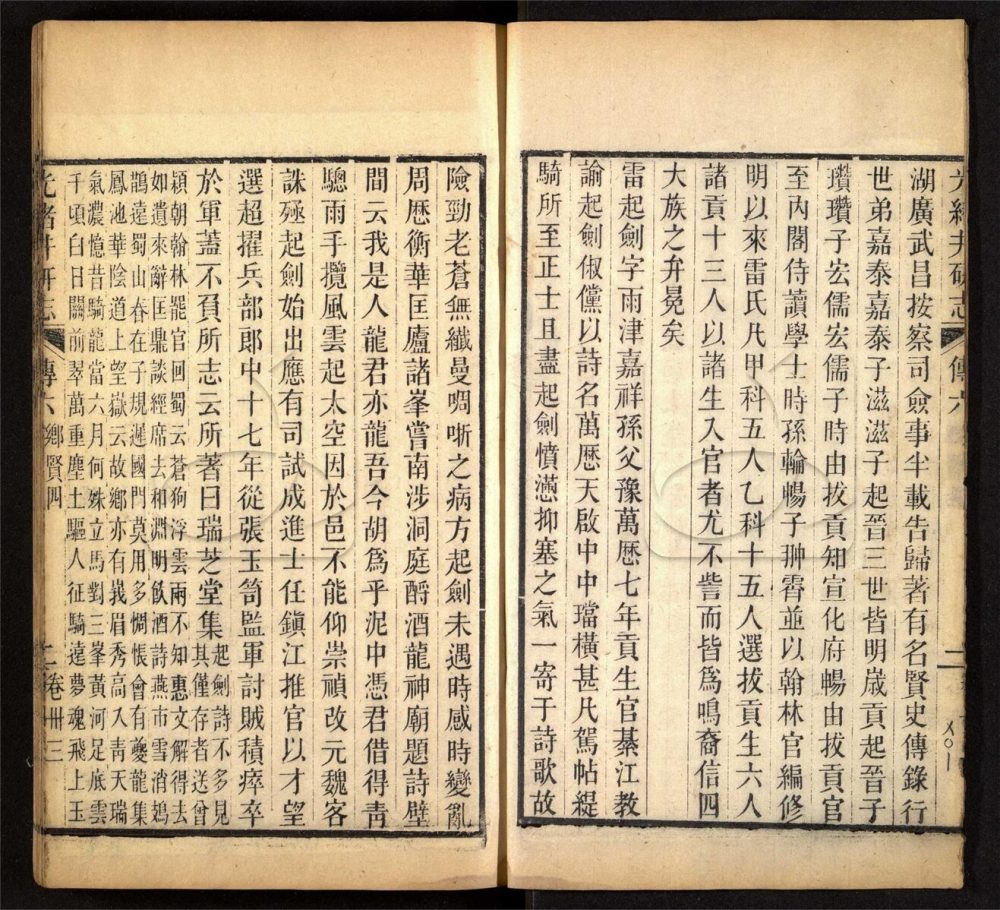 光緒井研志 傳六
湖廣武昌按察司僉事半載告歸著有名賢史傳錄行
世弟嘉泰嘉泰子滋滋子起晉三世皆明歲貢起晉子
瓚瓚子宏儒宏儒子時由拔貢知宣化府暢由拔貢官
至內閣侍讀學士時孫輪暢子翀霄並以翰林官編修
明以來雷氏凡甲科五人乙科十五人選拔貢生六人
諸貢十三人以諸生入官者尤不訾而皆爲鳴裔信四
大族之弁冕矣
雷起劍字雨津嘉祥孫父豫萬厯七年貢生官綦江教
諭起劍俶儻以詩名萬厯天啟中中璫橫甚凡駕帖緹
騎所至正士且盡起劍憤懣抑塞之氣一寄于詩歌故
險勁老蒼無纖曼啁哳之病方起劍未遇時感時變亂
周厯衡華匡廬諸峯嘗南涉洞庭酹酒龍神廟題詩壁
間云我是人龍君亦龍吾今胡爲乎泥中憑君借得靑
驄雨手攬風雲起太空因於邑不能仰崇禎改元魏客
誅殛起劍始出應有司試成進士任鎭江推官以才望
選超擢兵部郎中十七年從張玉笥監軍討賊積瘁卒
於軍蓋不負所志云所著曰瑞芝堂集
起劍詩不多見
其僅存者送曾
潁朝翰林罷官回蜀云蒼狗浮雲兩不知惠文解得去
如遺來辭匡鼎談經席去和淵明飲酒詩燕市雪消鴻
鵠遠蜀山春在子規遲國門莫用多惆悵會有夔龍集
鳳池華陰道上望嶽云故鄉亦有峩眉秀高入靑天瑞
氣濃憶昔騎龍當六月何姝立馬對三峯黃河足底雲
千頃白日關前翠萬重塵土驅人征騎遠夢魂飛上玉
光緒井研志 傳六 鄉賢四 二 卷卅三